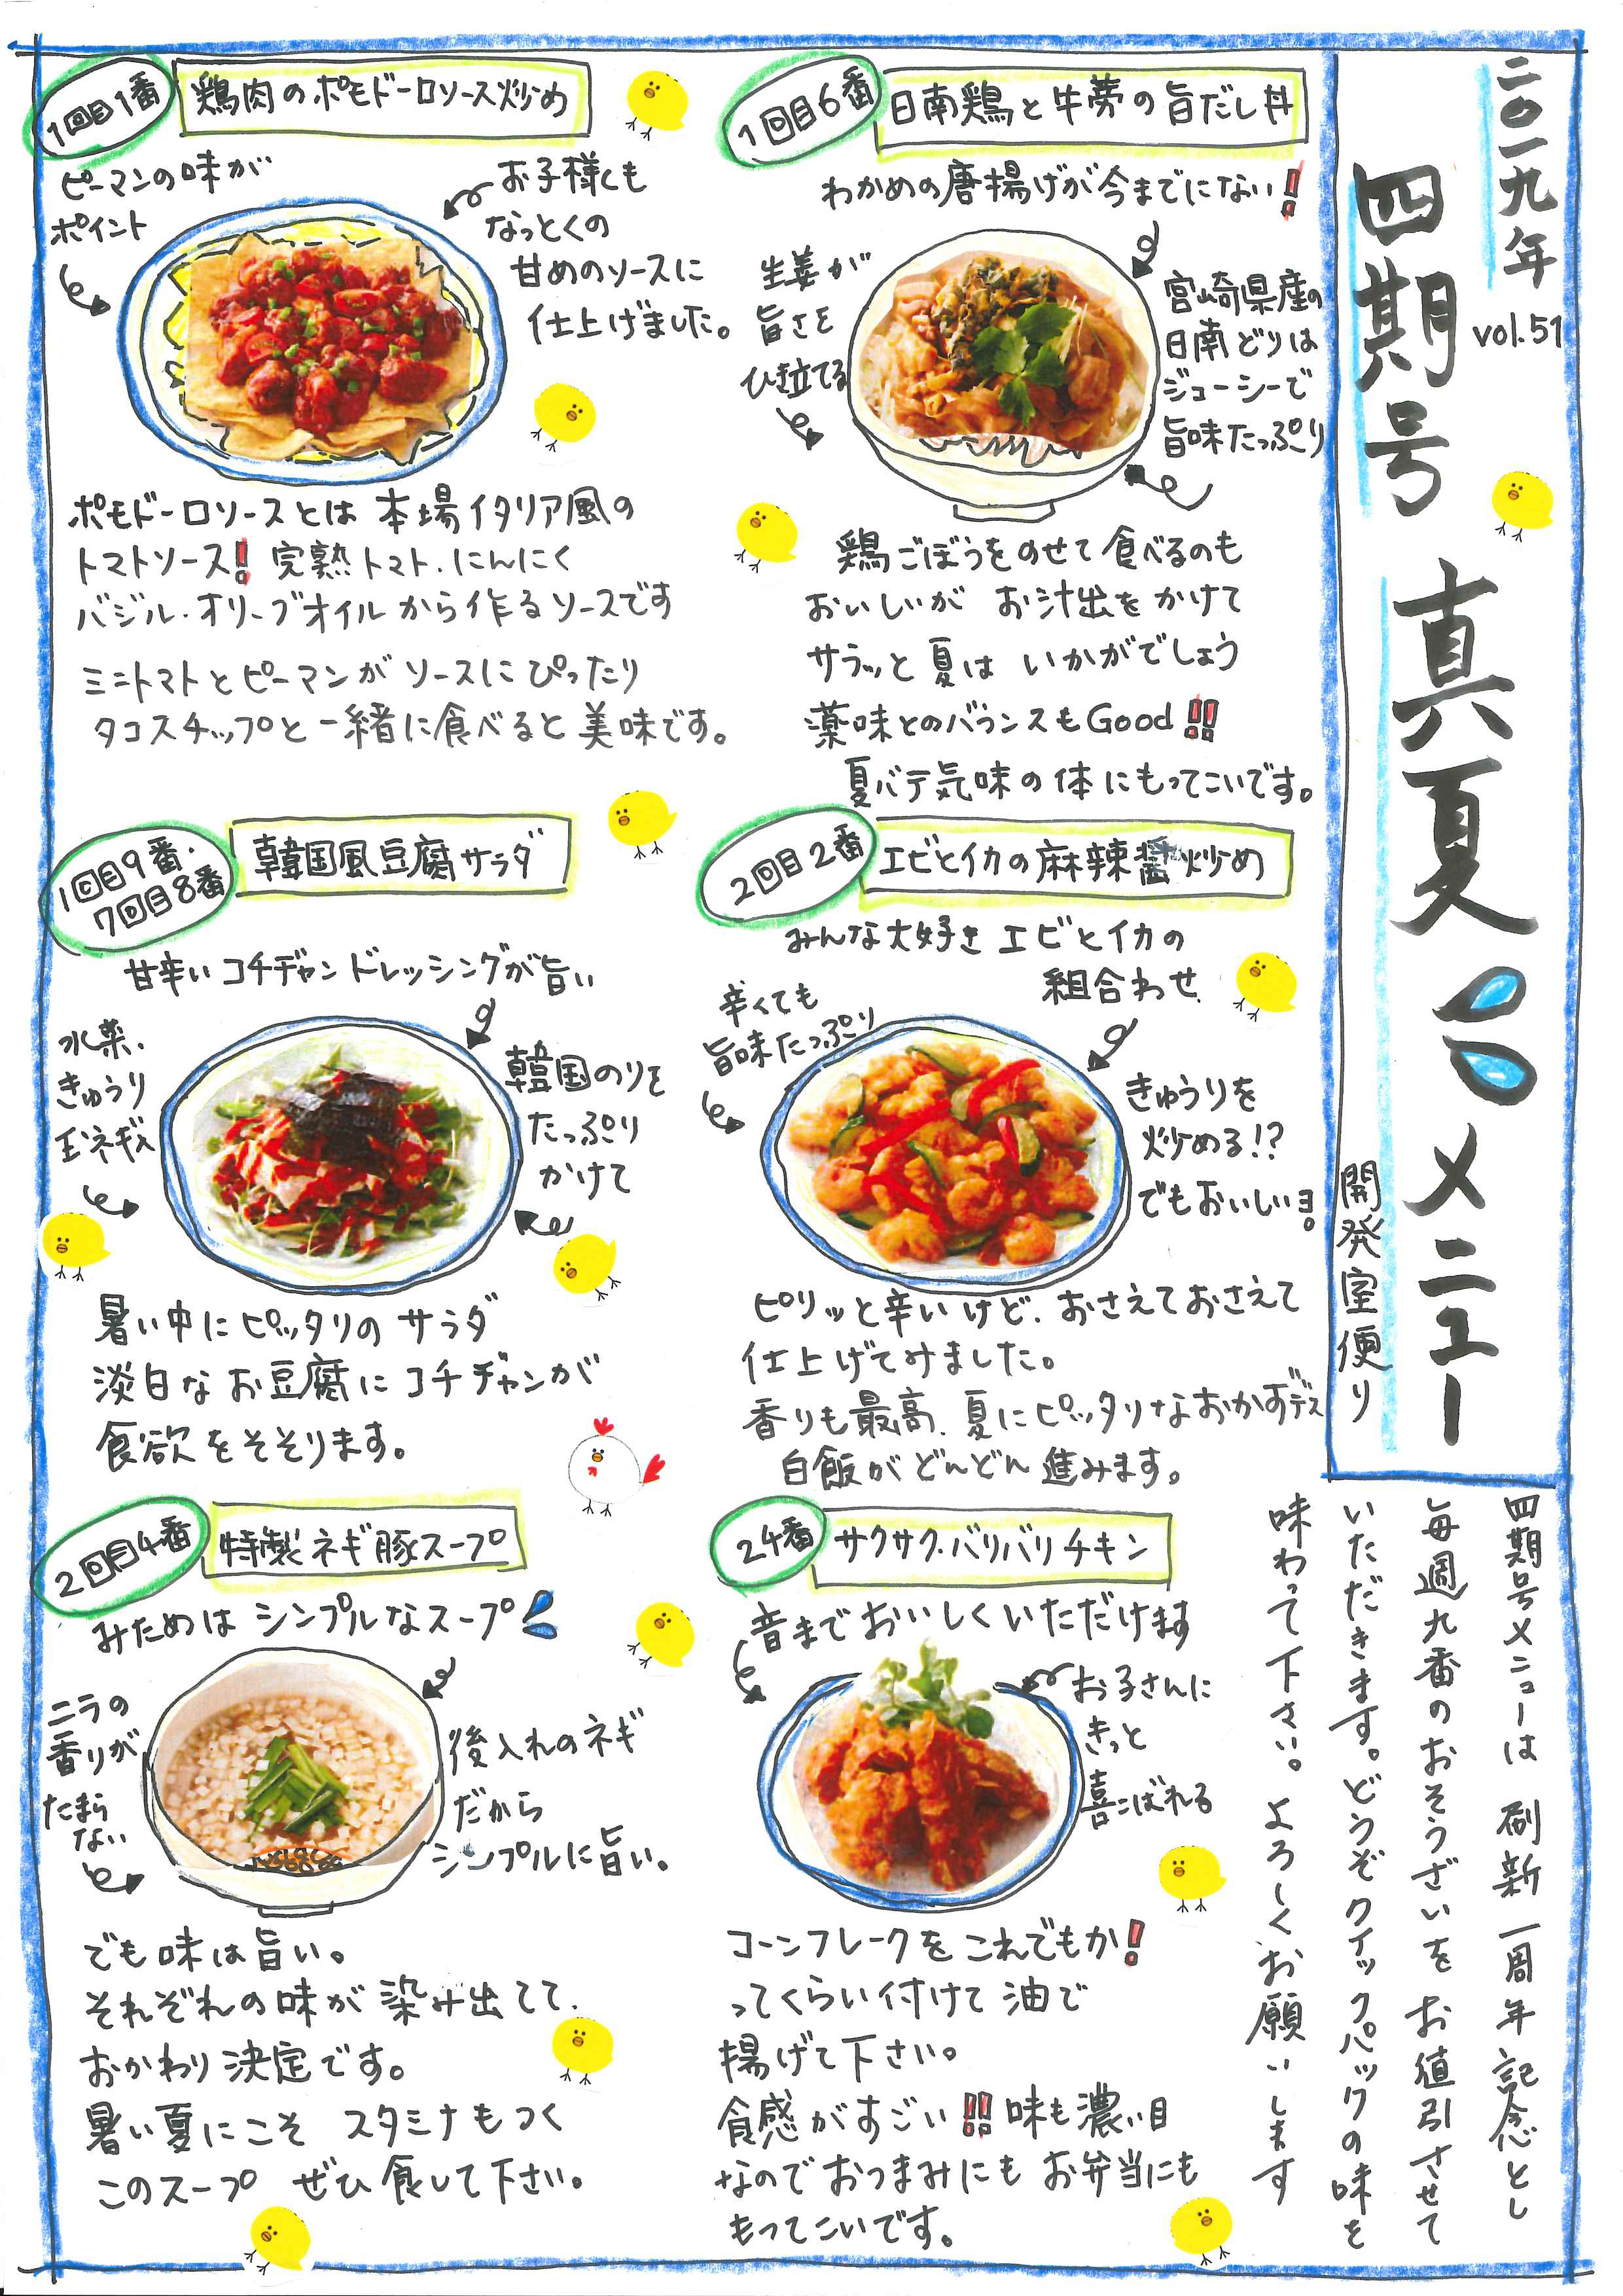 二〇一九年
vol.51
四期号 真夏 メニュー
開発室便り
1回目6番
日南鶏と牛蒡の旨だし丼
わかめの唐揚げが今までにない!
生姜が
旨さを
ひき立てる
宮崎県産の
日南どりは
ジューシーで
旨味たっぷり
鶏ごぼうをのせて食べるのも
おいしいが お汁出をかけて
サラッと夏は いかがでしょう
薬味とのバランスもGood!!
夏バテ気味の体にもってこいです。
1回目1番
鶏肉のポモドーロソース炒め
ピーマンの味が
ポイント
お子様にも
なっとくの
甘めのソースに
仕上げました。
ポモドーロソースとは 本場イタリア風の
トマトソース! 完熟トマト.にんにく
バジル.オリーブオイルから作るソースです
ミニトマトとピーマンがソースにぴったり
タコスチップと一緒に食べると美味です。
2回目2番
エビとイカの麻辣醤炒め
みんな大好き エビとイカの
組合わせ.
辛くても
旨味たっぷり
きゅうりを
炒める!?
でもおいしいヨ。
ピリッと辛いけど.おさえておさえて
仕上げてみました。
香りも最高.夏にピッタリなおかずデス
白飯がどんどん進みます。
1回目9番.
7回目8番
韓国風豆腐サラダ
甘辛いコチヂャンドレッシングが旨い
水菜.
きゅうり
玉ネギ入
韓国のりを
たっぷり
かけて
暑い中にピッタリのサラダ
淡白なお豆腐にコチヂャンが
食欲をそそります。
24番
サクサク.バリバリチキン
音までおいしくいただけます
お子さんに
きっと
喜こばれる
コーンフレークをこれでもか!
ってくらい付けて油で
揚げて下さい。
食感がすごい!!味も濃い目
なのでおつまみにもお弁当にも
もってこいです。
2回目4番
特製ネギ豚スープ
みためはシンプルなスープ
ニラの
香りが
たまら
ない
後入れのネギ
だから
シンプルに旨い。
でも味は旨い。
それぞれの味が染み出てて.
おかわり決定です。
暑い夏にこそ スタミナもつく
このスープ ぜひ食して下さい。
四期号メニューは 刷新一周年記念とし
毎週九番のおそうざいをお値引させて
いただきます。どうぞクイックパックの味を
味わって下さい。よろしくお願いします